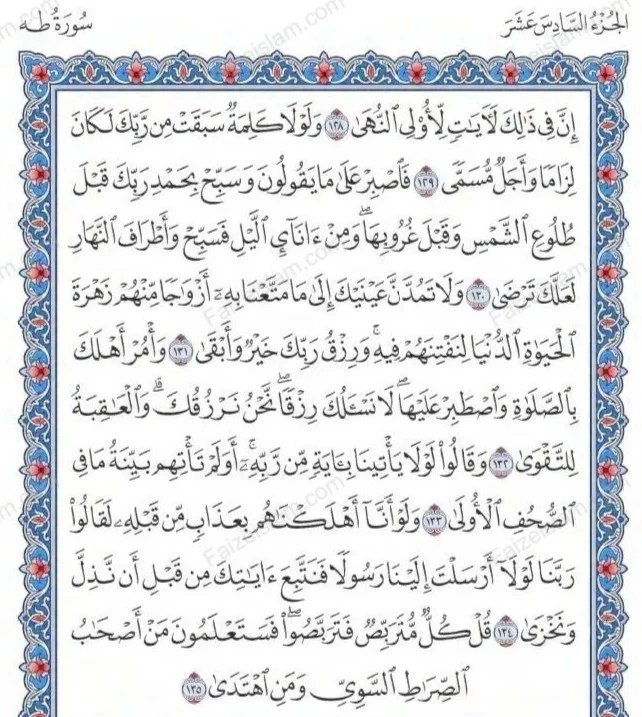 الجُزْءُ السَّادِسَ عَشَرَ سُورَةُ طه
إِنَّ فِي ذَٰلِكَ لَآيَٰتٖ لِّأُوْلِي ٱلنُّهَىٰ ١٢٨ وَلَوۡلَا كَلِمَةٞ سَبَقَتۡ مِن رَّبِّكَ لَكَانَ
لِزَامٗا وَأَجَلٞ مُّسَمّٗى ١٢٩ فَٱصۡبِرۡ عَلَىٰ مَا يَقُولُونَ وَسَبِّحۡ بِحَمۡدِ رَبِّكَ قَبۡلَ
طُلُوعِ ٱلشَّمۡسِ وَقَبۡلَ غُرُوبِهَاۖ وَمِنۡ ءَانَآيِٕ ٱلَّيۡلِ فَسَبِّحۡ وَأَطۡرَافَ ٱلنَّهَارِ
لَعَلَّكَ تَرۡضَىٰ ١٣٠ وَلَا تَمُدَّنَّ عَيۡنَيۡكَ إِلَىٰ مَا مَتَّعۡنَا بِهِۦٓ أَزۡوَٰجٗا مِّنۡهُمۡ زَهۡرَةَ
ٱلۡحَيَوٰةِ ٱلدُّنۡيَا لِنَفۡتِنَهُمۡ فِيهِۚ وَرِزۡقُ رَبِّكَ خَيۡرٞ وَأَبۡقَىٰ ١٣١ وَأۡمُرۡ أَهۡلَكَ
بِٱلصَّلَوٰةِ وَٱصۡطَبِرۡ عَلَيۡهَاۖ لَا نَسۡـَٔلُكَ رِزۡقٗاۖ نَّحۡنُ نَرۡزُقُكَۗ وَٱلۡعَٰقِبَةُ
لِلتَّقۡوَىٰ ١٣٢ وَقَالُواْ لَوۡلَا يَأۡتِينَا بِـَٔايَةٖ مِّن رَّبِّهِۦٓۚ أَوَلَمۡ تَأۡتِهِم بَيِّنَةُ مَا فِي
ٱلصُّحُفِ ٱلۡأُولَىٰ ١٣٣ وَلَوۡ أَنَّآ أَهۡلَكۡنَٰهُم بِعَذَابٖ مِّن قَبۡلِهِۦ لَقَالُواْ
رَبَّنَا لَوۡلَآ أَرۡسَلۡتَ إِلَيۡنَا رَسُولٗا فَنَتَّبِعَ ءَايَٰتِكَ مِن قَبۡلِ أَن نَّذِلَّ
وَنَخۡزَىٰ ١٣٤ قُلۡ كُلّٞ مُّتَرَبِّصٞ فَتَرَبَّصُواْۖ فَسَتَعۡلَمُونَ مَنۡ أَصۡحَٰبُ
ٱلصِّرَٰطِ ٱلسَّوِيِّ وَمَنِ ٱهۡتَدَىٰ ١٣٥
Faizeislam.com